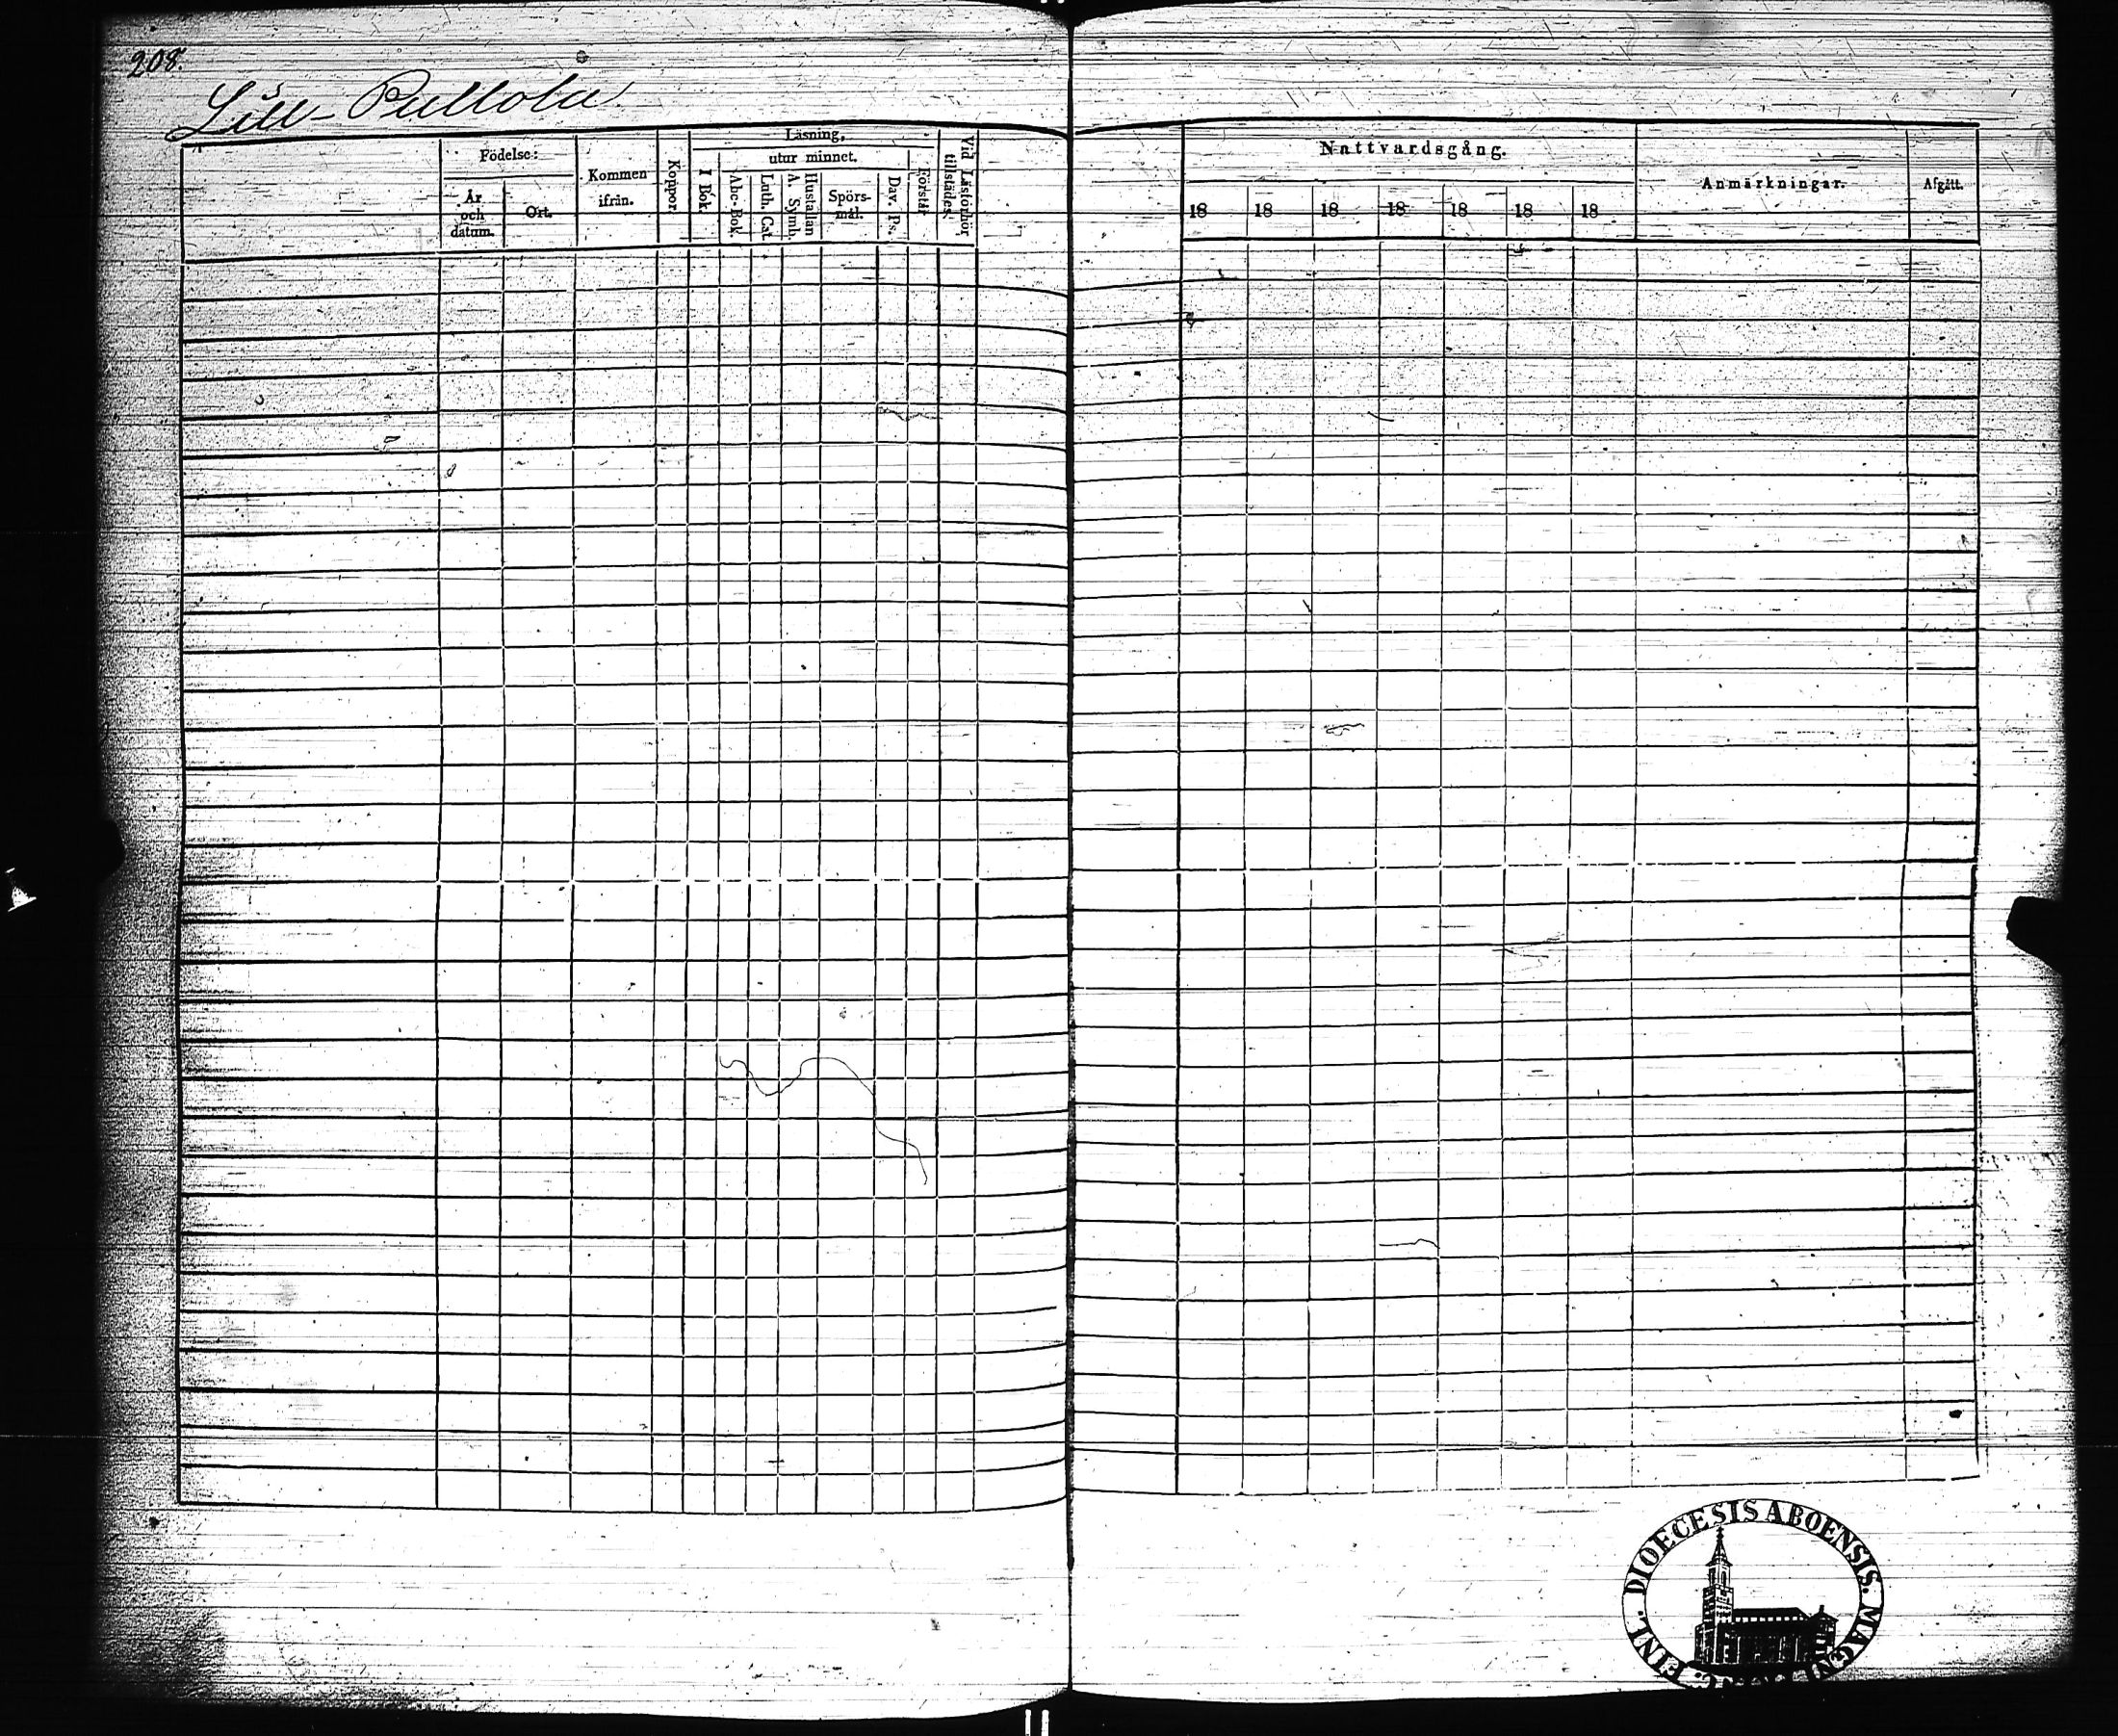 208.
Lill-Pullola
Födelse:
År och datum.
Ort.
Kommen ifrån.
Koppor.
Läsning,
utur minnet.
I Bok.
Abc-Bok.
Luth. Cat.
Hustaflan A. Symb.
Spörs-mål.
Dav. Ps.
Förstår
Vid Läsförhör tillstädes.
Nattvardsgång.
18 18 18 18 18 18 18
Anmärkningar.
Afgått.
DIOECESIS ABOENSIS. MAGNI
FINL.